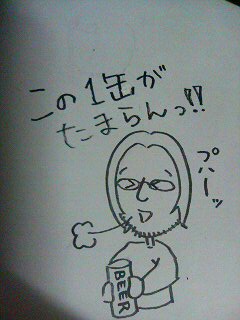 この1缶が
たまらんっ!!
プハーッ
BEER